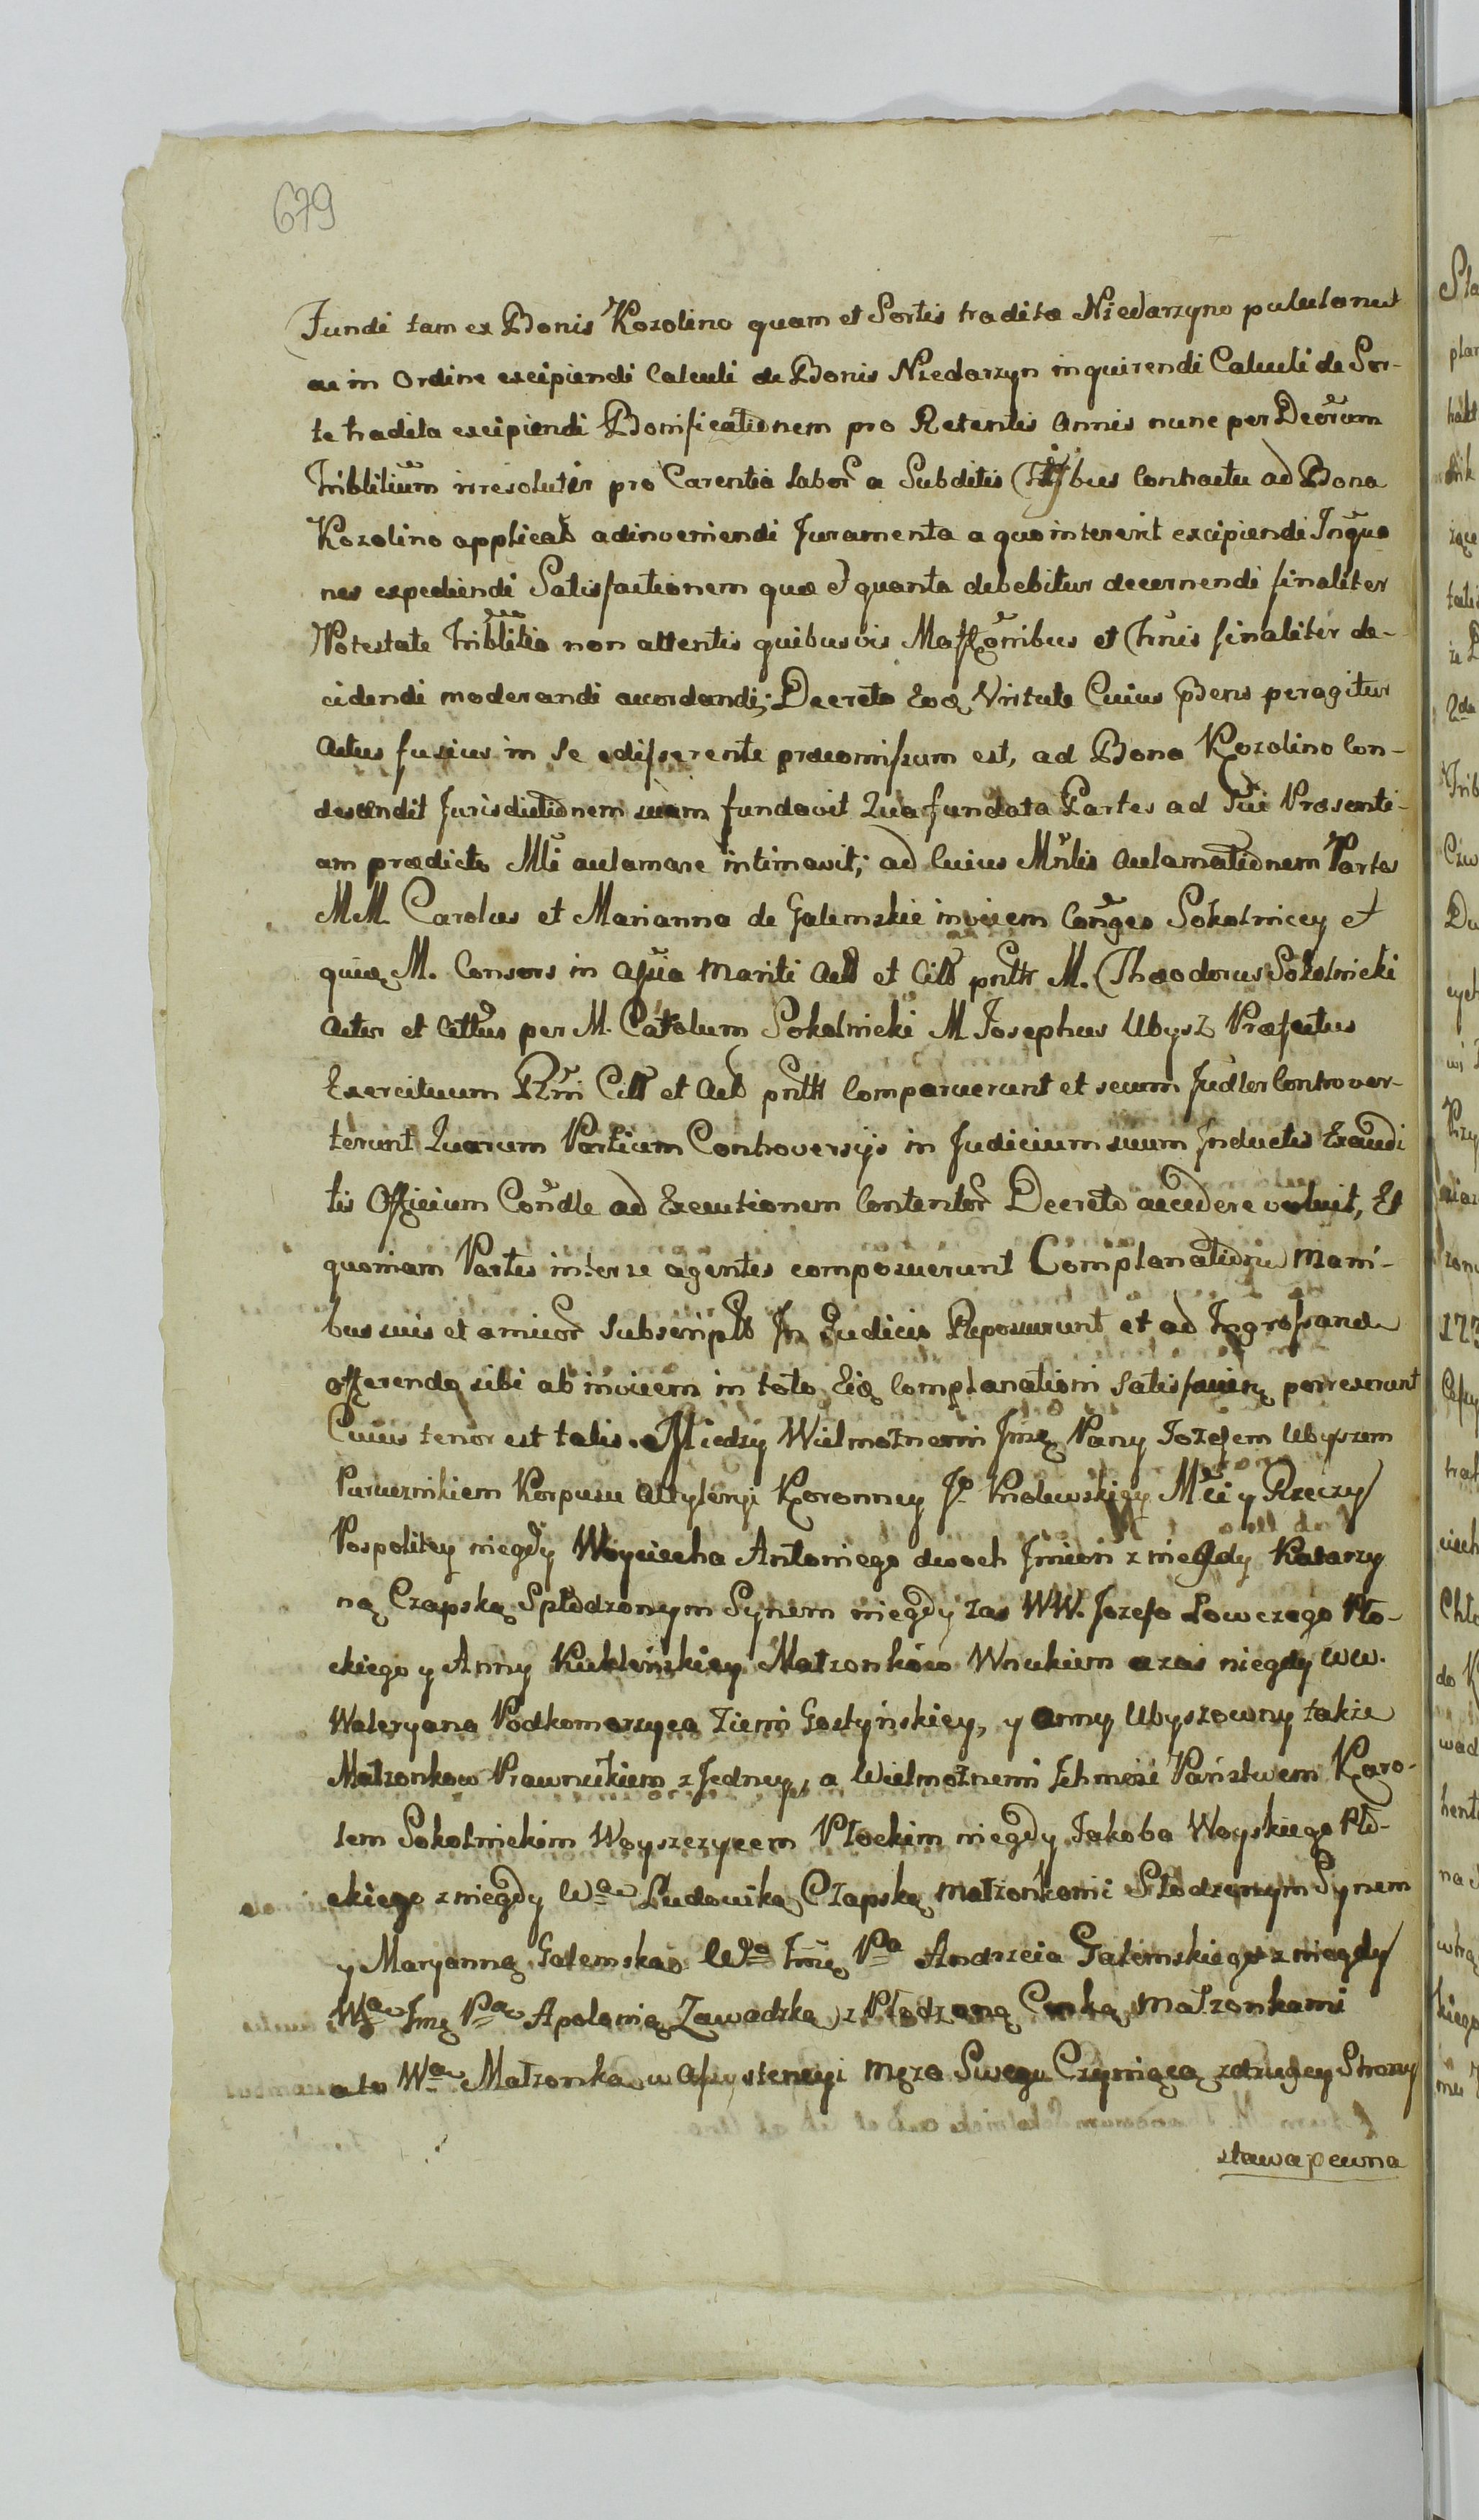 679
Fundi tam ex Bonis Kozolino quam et Sortis tradita Niedarzyno pululanut
ac in Ordine excipiendi Calculi de Bonis Niedarzyn inquirendi Calculi de Sor-
te tradita excipiendi Bonificationem pro Retentis Annis nunc per Decrum
Tribltium irresolutis pro Carentia labor a Subditis Contractu ad Bona
Kozolino applicat adinveniendi Juramenta a quo intererit excipiendi Inquo
nes expediendi Satisfactionem quæ et quanta debebitur decernendi finaliter
Potestate Tribltia non attentis quibusvis et finaliter de-
cidendi moderandi accordandi; Decreto Eoq Virtute Cuius Pñens peragitur
Actus fusius in se edisserente præomissum est, ad Bona Kozolino Con-
descendit Jurisdictionem suam fundavit Qua fundata Partes ad Sui Præsenti-
am prædicto Mli aclamare intimavit; ad Cuius Mnlis aclamationem Partes
MM. Carolus et Marianna de Galemskie invicem Conges Sokolniccy et
quiæ M. Consors in Assia Mariti Act et Citt pntr M. Theodorus Sokolnicki
Actor et Cittus per M. Carolum Sokolnicki M Josephus Ubysz Præfectus
Exercituum Rmi Citt et Act pntr Comparuerunt et secum Judler Controver-
terunt Quarum Partium Controversijs in Judicium suum Inductis Exaudi
tis Officium Condle ad Executionem Contentor Decreto accedere voluit, Et
quoniam Partes inter se agentes composuerunt Complanationem Mani-
bus suis et amicor Subscript In Judicio Reposuerunt et ad Ingrossand
offerendo sibi ab invicem in toto Eiq Complanationi Satisfacier porrexerunt
Cuius tenor est talis. Miedzy Wielmożnemi Jmę Pany Jozefem Ubyszem
Porucznikiem Korpusu Artyleryi Koronney J. Krolewskiey Mći y Rzeczy
Pospolitey niegdy Woyciecha Antoniego dwoch Jmion z niegdy Katarzy
ną Czapską Spłodzonym Synem niegdy zas WW. Jozefa Łowczego Pło-
ckiego y Anny Kuklinskiey Małzonkow Wnukiem a zas niegdy WW.
Waleryana Podkomorzyca Ziemi Gostyńskiey, y Anny Ubyszowny także
Małzonkow Prawnukiem z Jedney, a Wielmożnemi Ichmosć Państwem Karo-
lem Sokolnickim Woyszczycem Płockim niegdy Jakoba Woyskiego Pło-
ckiego z niegdy Wą Ludowiką Czapską małzonkami Spłodzonym Synem
y Maryanną Galemską Wa Jmę Pa Andrzeia Galemskiego z niegdy
Wą Jmę Pą Apolonią Zawadzką z Płodzoną Curką Małzonkami
a to Wą Małzonką w Assystencyi Męza Swego Czyniącą z drugiey Strony
stawa pewna